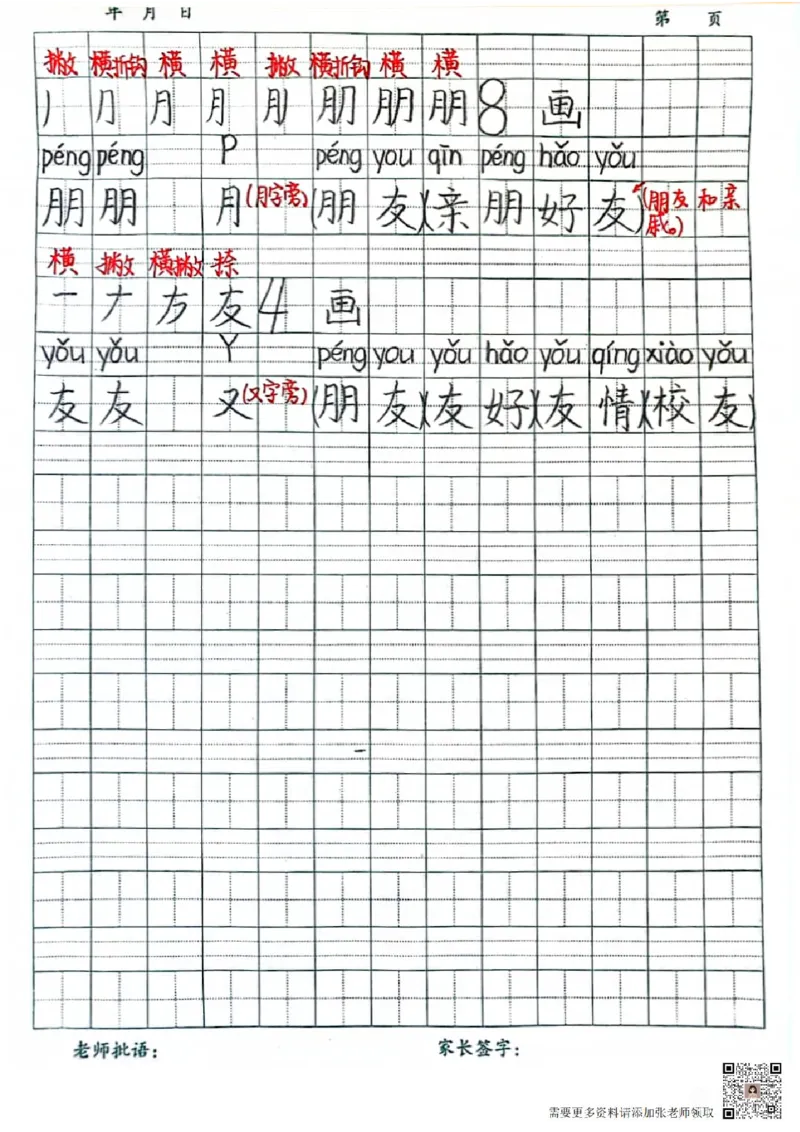 年 月 日
第 页
撇 横折钩 横 横 撇 横折钩 横 横
丿 ⺆ 月 月 朋 朋 8 画
péng péng P péng you qīn péng hǎo yǒu
朋 朋 月(月字旁)(朋 友)(亲 朋 好 友)(朋友和亲戚。)
横 撇 横撇 捺
一 ナ 方 友 4 画
yǒu yǒu Y péng you yǒu hǎo yǒu qíng xiào yǒu
友 友 又(又字旁)(朋 友)(友 好)(友 情)(校 友)
老师批语:
家长签字:
需要更多资料请添加张老师领取